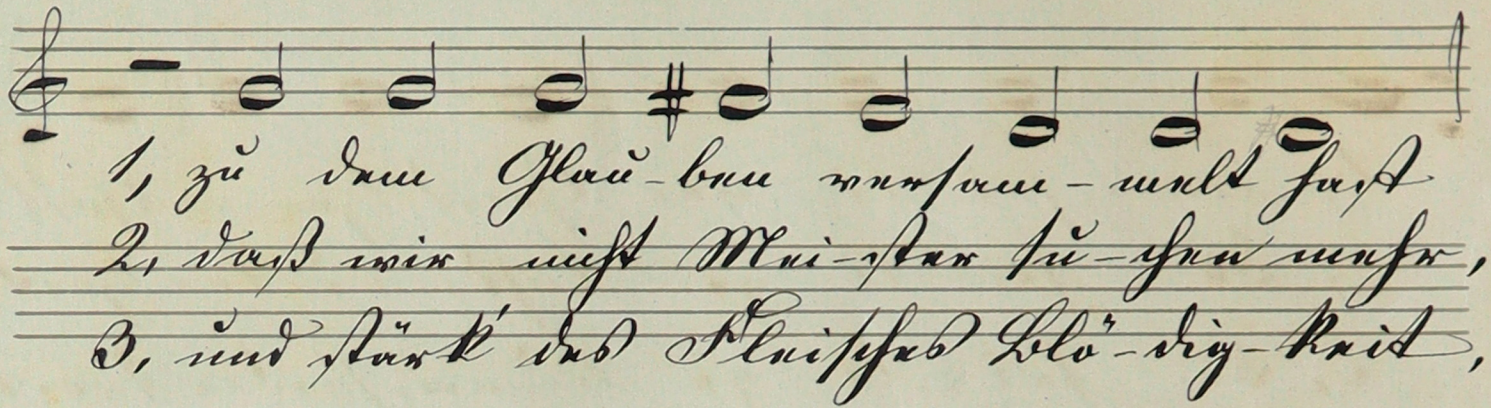 1, zu dem Glau-ben versam-melt hast
2, daß wir nicht Mei-ster su-chen mehr,
3, und stärk' des Fleisches Blö-dig-keit,